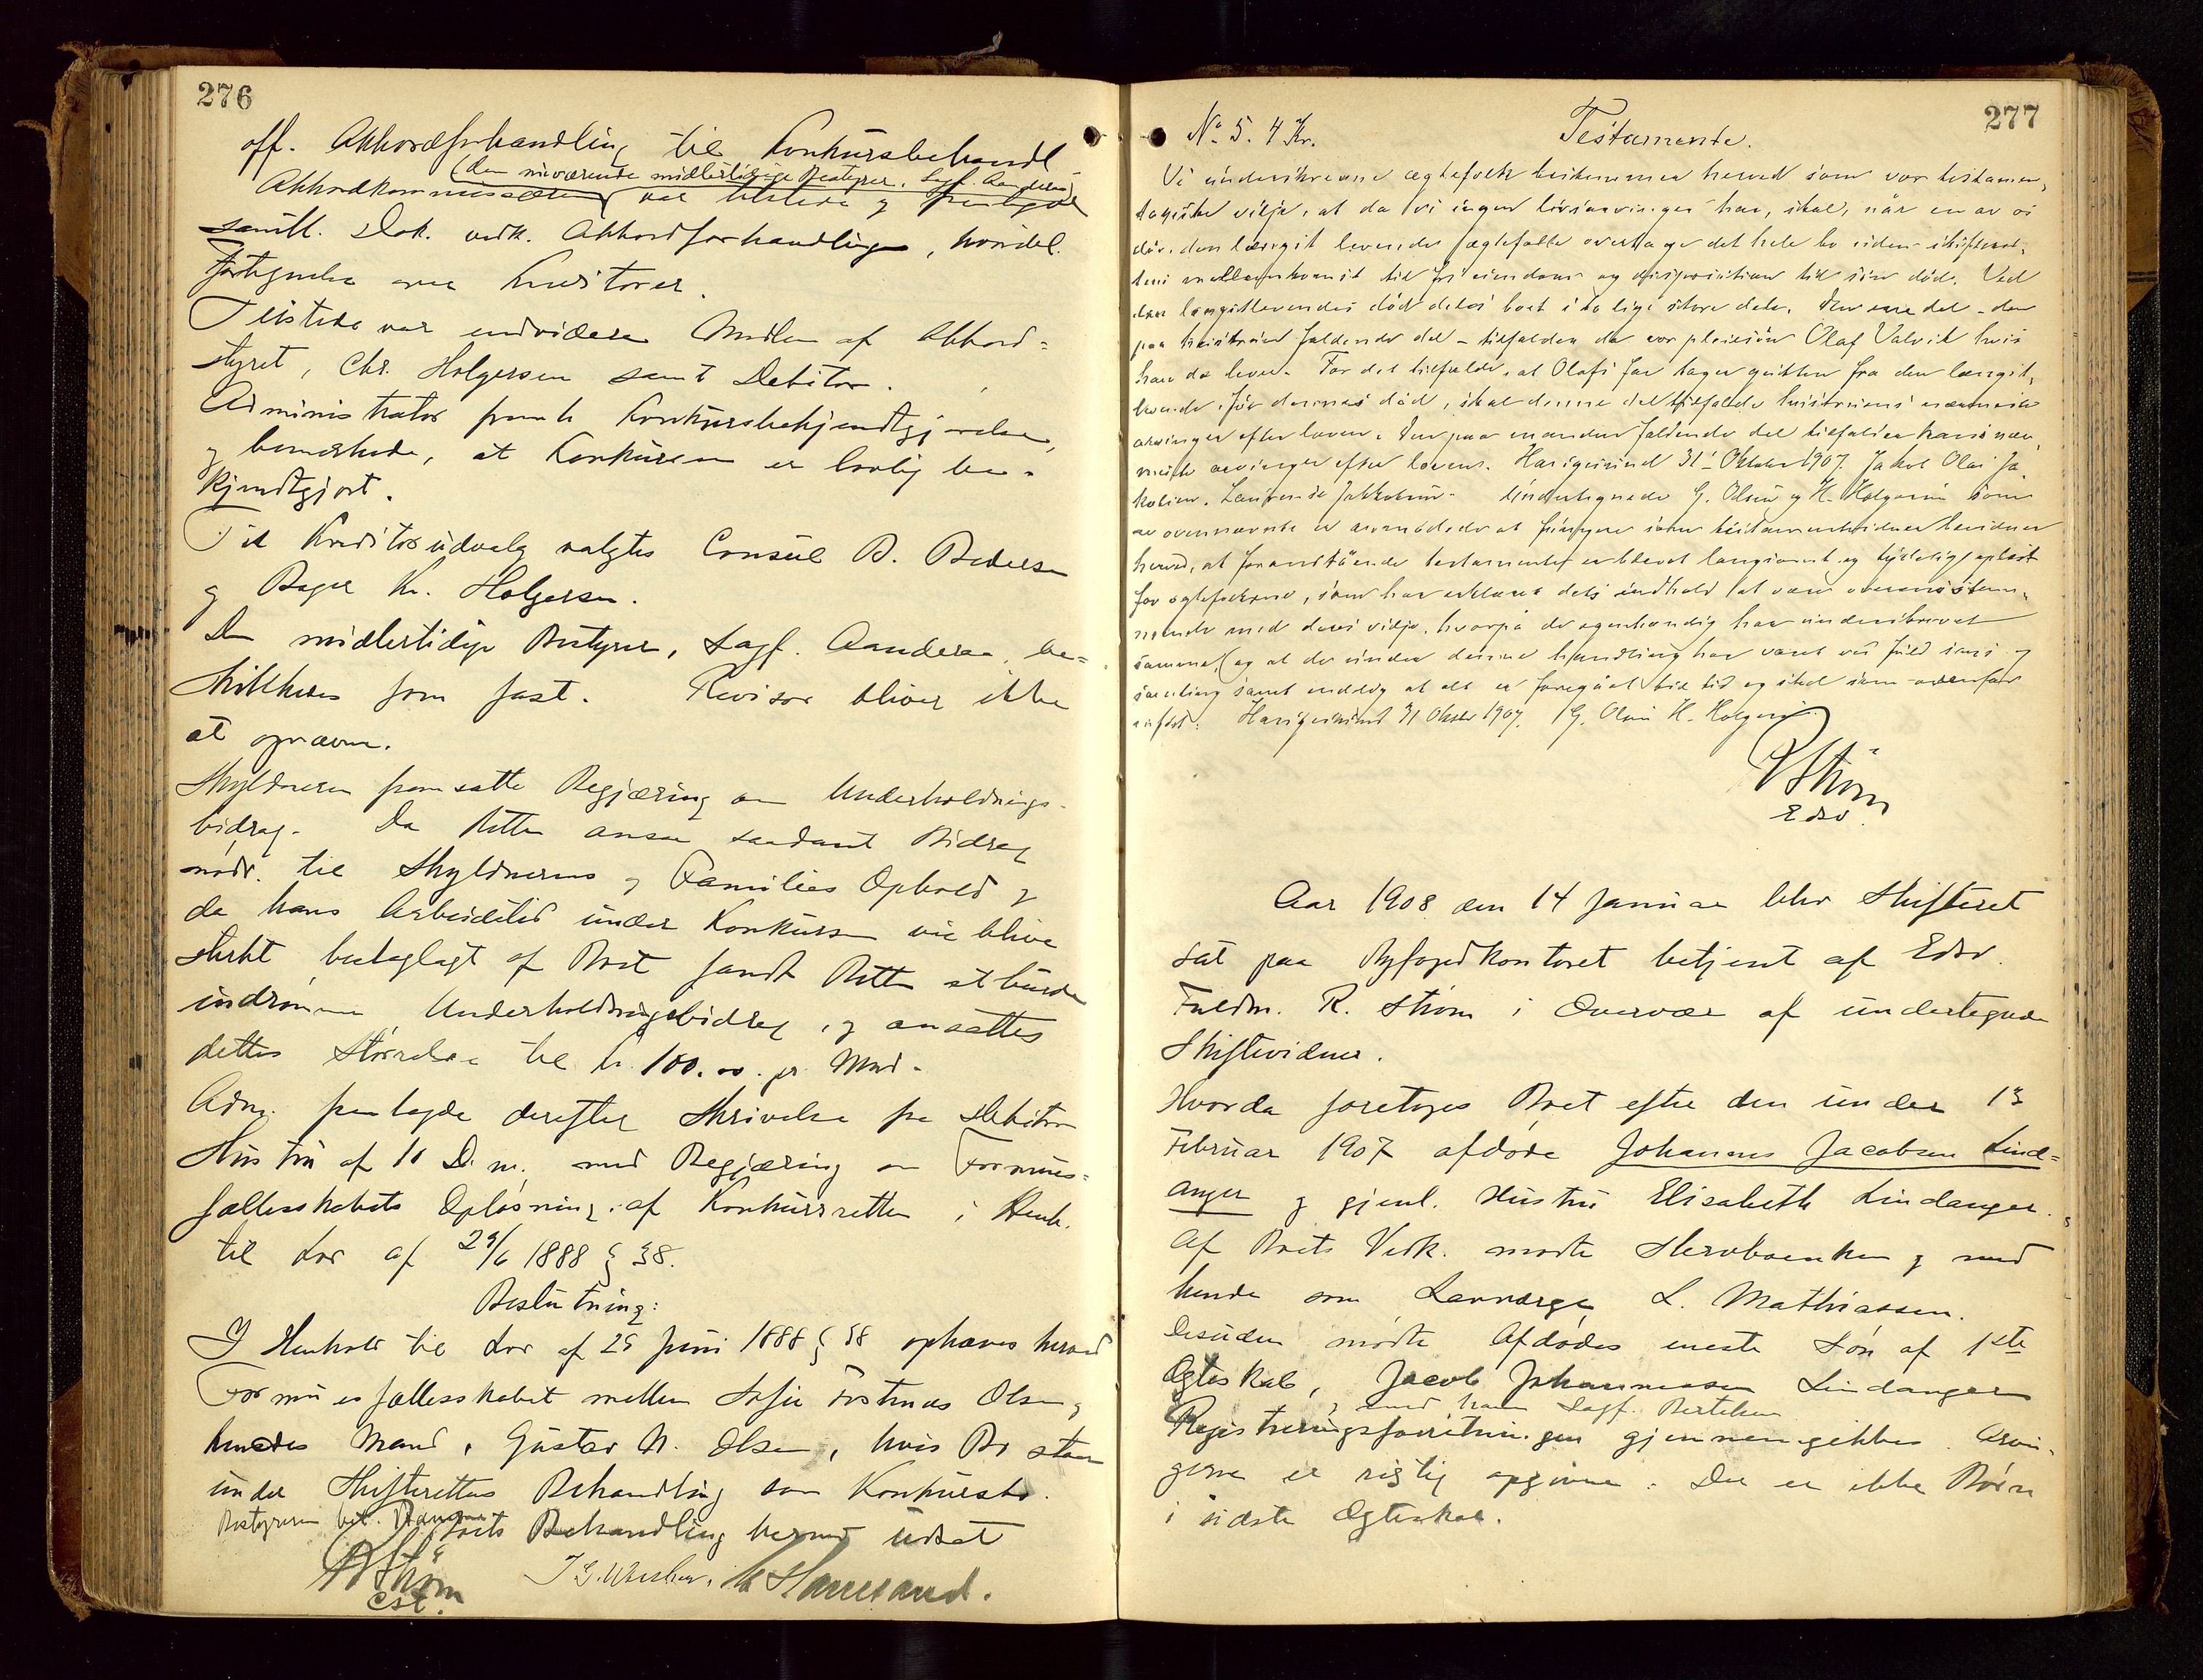 276
off. Akkordforhandling til Konkursbehandl
(den nuværende midlertidige Bestyrer, Sagf. Aanderaa)
Akkordkommissæren var tilstede og fremlagde
samtl. Dok. vedk. Akkordforhandlingen, hvoribl.
Fortegnelse over Kreditorer.
Tilstede var endvidere Medlem af Akkord=
styret, Chr. Holgersen samt Debitor.
Administrator freml. Konkursbekjendtgjørelse,
og bemærkede, at Konkursen er lovlig be-
kjendtgjort.
Til Kreditorudvalg valgtes Consul B. Pedersen
og Bager Kr. Holgersen.
Den midlertidige Bestyrer, Sagf. Aanderaa, be=
skikkedes som fast. Revisor bliver ikke
at opnævne.
Skyldneren fremsatte Begjæring om Underholdnings-
bidrag. Da Retten ansaa saadant Bidrag
nødv. til Skyldnerens og Families Ophold og
da hans Arbeidstid under Konkursen vil blive
sterkt beslaglagt af Boet fandt Retten at burde
indrømme Underholdningsbidrag, og ansattes
dettes Størrelse til kr. 100.00 pr. Mnd.
Adm. fremlagde derefter Skrivelse fra Debitors
Hustru af 10 D. m. med Begjæring om Formues=
fællesskabets Opløsning af Konkursretten i Henh.
til Lov af 29/6 1888 § 38.
Beslutning:
I Henhold til Lov af 29 Juni 1888 § 38 ophæves herved
Formuesfællesskabet mellem Sofie Olsen og
hendes Mand, Gustav N. Olsen, hvis Bo staar
under Skifterettens Behandling som Konkursbo.
Bestyreren bet.
Boets Behandling hermed udsat
R Strøm
cst.
277
No 5. 4 Kr. Testamente.
Vi underskrevne ægtefolk bestemmer herved som vor testamen,
tariske vilje, at da vi ingen livsarvinger har, skal, når en av os
dør, den længst levende ægtefælle overtage det hele bo uden skifteret,
tens mellemkomst til fri eiendom og disposition til sin død. Ved
den længstlevendes død deles boet i to lige store dele. Den ene del - den
paa hustruen faldende del - tilfalder da vor pleiesøn Olaf Valvik hvis
han da lever. For det tilfælde, at Olaf før tager quitten fra den længst,
levende, før dennes død, skal denne del tilfalde hustruens nærmeste
arvinger efter loven. Den paa manden faldende del tilfalder hans nær,
meste arvinger efter loven. Haugesund 31 Oktober 1907. Jakob Olai Ja,
kobsen. Jakkobsen. Undertegnede G. Olsen og H. Holgersen som
av ovennævnte er anmodede at fungere som testamentvidner bevidner
herved, at foranstående testamente er blevet langsomt og tydelig oplæst
for ægtefolkene, som har erklæret dets indhold at være overensstem,
mende med deres vilje, hvorpå de egenhændig har underskrevet
samme, og at de under denne handling har været ved fuld sans og
samling samt endelig at alt er foregået til tid og sted som ovenfor
anført. Haugesund 31 Oktober 1907. G. Olsen H. Holgersen
R Strøm
Edsv.
Aar 1908 den 14 Januar blev Skifteret
sat paa Byfogedkontoret betjent af Edsv.
Fuldm. R. Strøm i Overvær af undertegnede
Skiftevidner.
Hvorda foretoges Boet efter den under 13
Februar 1907 afdøde Johannes Jacobsen Lind=
anger og gjenl. Hustru Elisabeth Lindanger.
Af Boets Vedk. mødte Stervboenken og med
hende som Laugværge L. Mathiassen.
Desuden mødte Afdødes eneste Søn af 1ste
Ægteskab, Jacob Johannessen Lindanger
og med ham Sagf. Bertelsen
Registreringsforretningen gjennemgikkes. Arvin-
gerne er rigtig opgivne. Der er ikke Børn
i sidste Ægteskab.